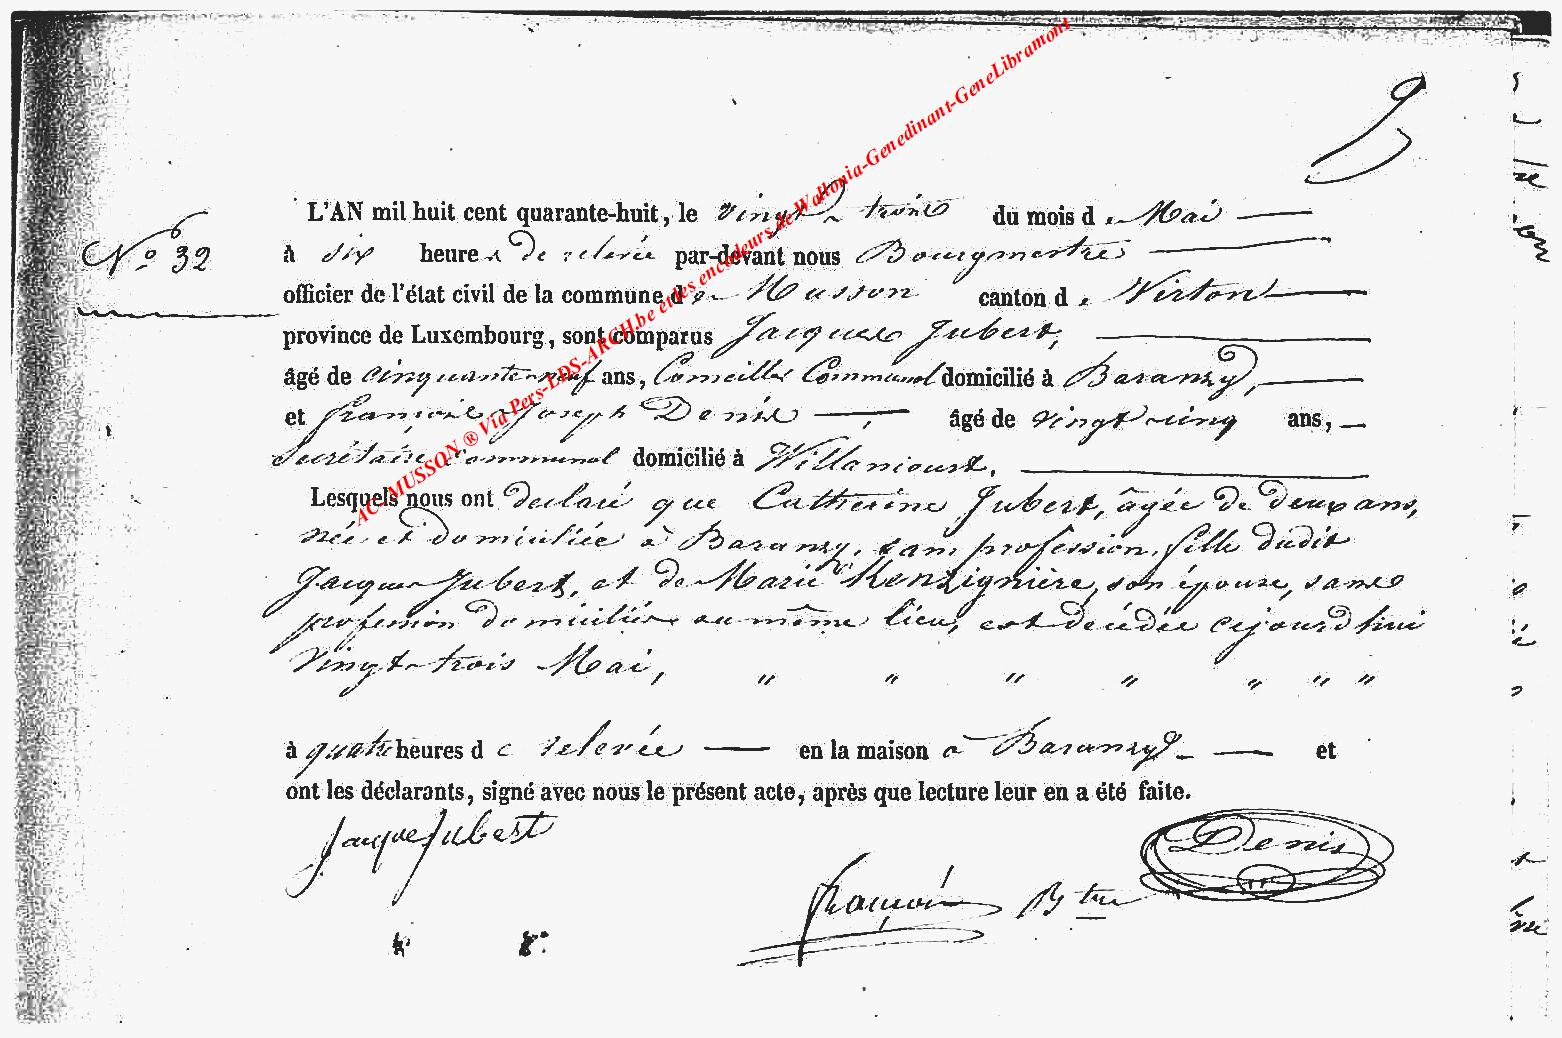 L'AN mil huit cent quarante-huit, le vingt-trois du mois de Mai
No 32
à six heures de relevée par-devant nous Bourgmestre
officier de l'état civil de la commune de Musson canton de Virton
province de Luxembourg, sont comparus Jacques Jubert,
âgé de cinquante-neuf ans, Conseiller Communal domicilié à Baranzy,
et François Joseph Denis, âgé de vingt-cinq ans,
Secrétaire Communal domicilié à Willancourt,
Lesquels nous ont declaré que Catherine Jubert, âgée de deux ans,
née et domiciliée à Baranzy, sans profession, fille dudit
Jacques Jubert, et de Marie Kenzignière, son épouse, sans
profession domiciliée au même lieu, est décédée cejourd'hui
vingt-trois Mai, " " " " " " "
à quatre heures de relevée en la maison à Baranzy et
ont les déclarants, signé avec nous le présent acte, après que lecture leur en a été faite.
Jacque Jubert
Denis
François Bgtre
AC-MUSSON ® Via Pers-LDS-ARCH.be et des encodeurs de Wallonia-Genedinant-GeneLibramont